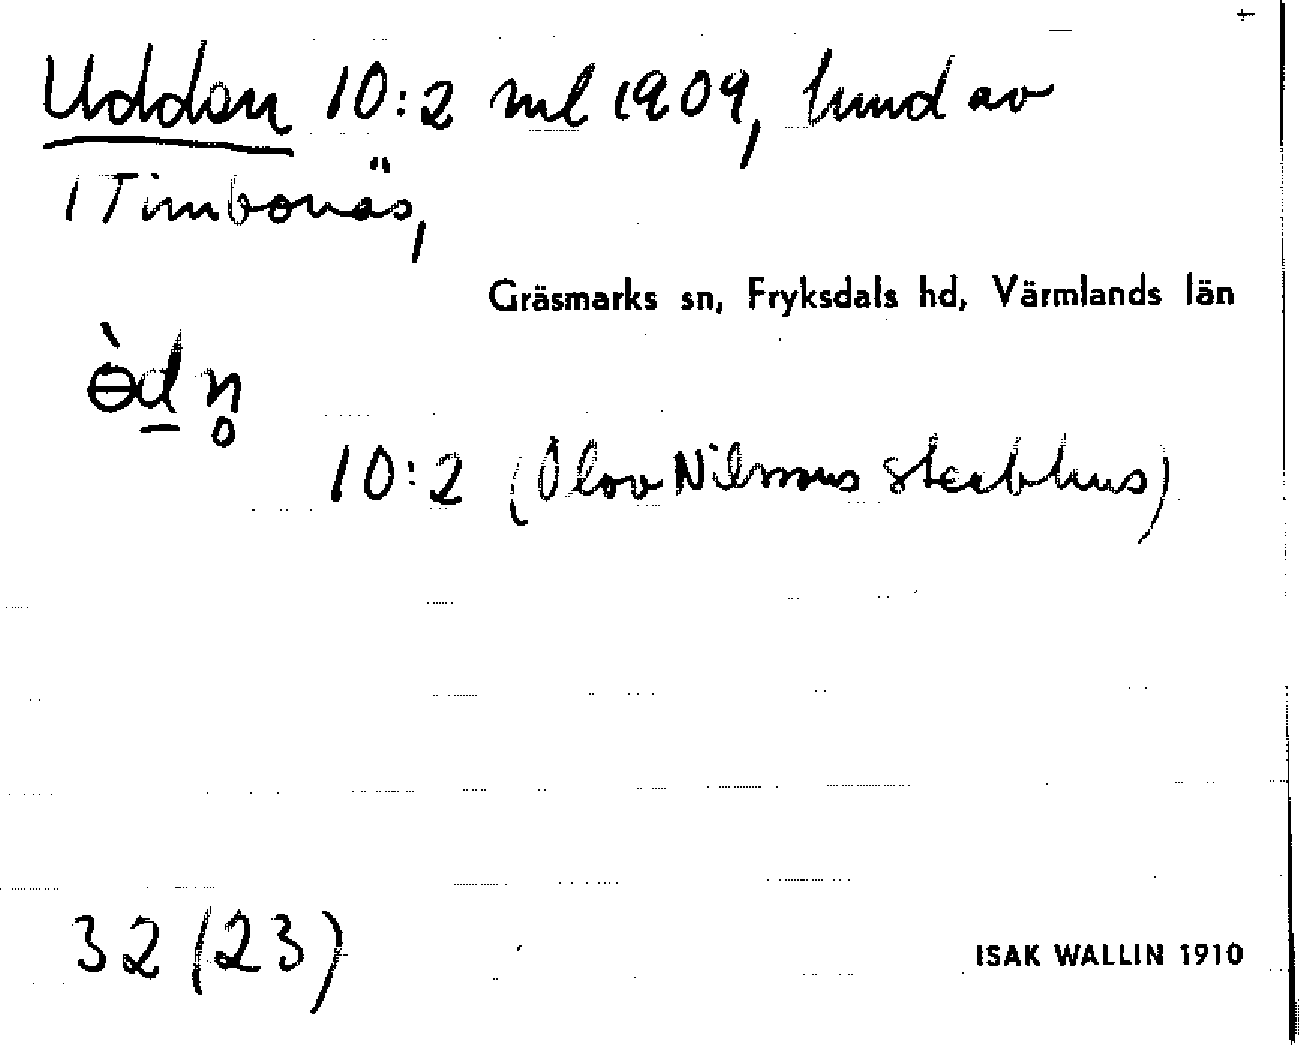 Udden 10:2 ml 1909, hmd av
1 Timbonäs,
Gräsmarks sn, Fryksdals hd, Värmlands län
ɵ̀d̲n̥
10:2 (Olov Nilssons sterbhus)
32 (23)
ISAK WALLIN 1910